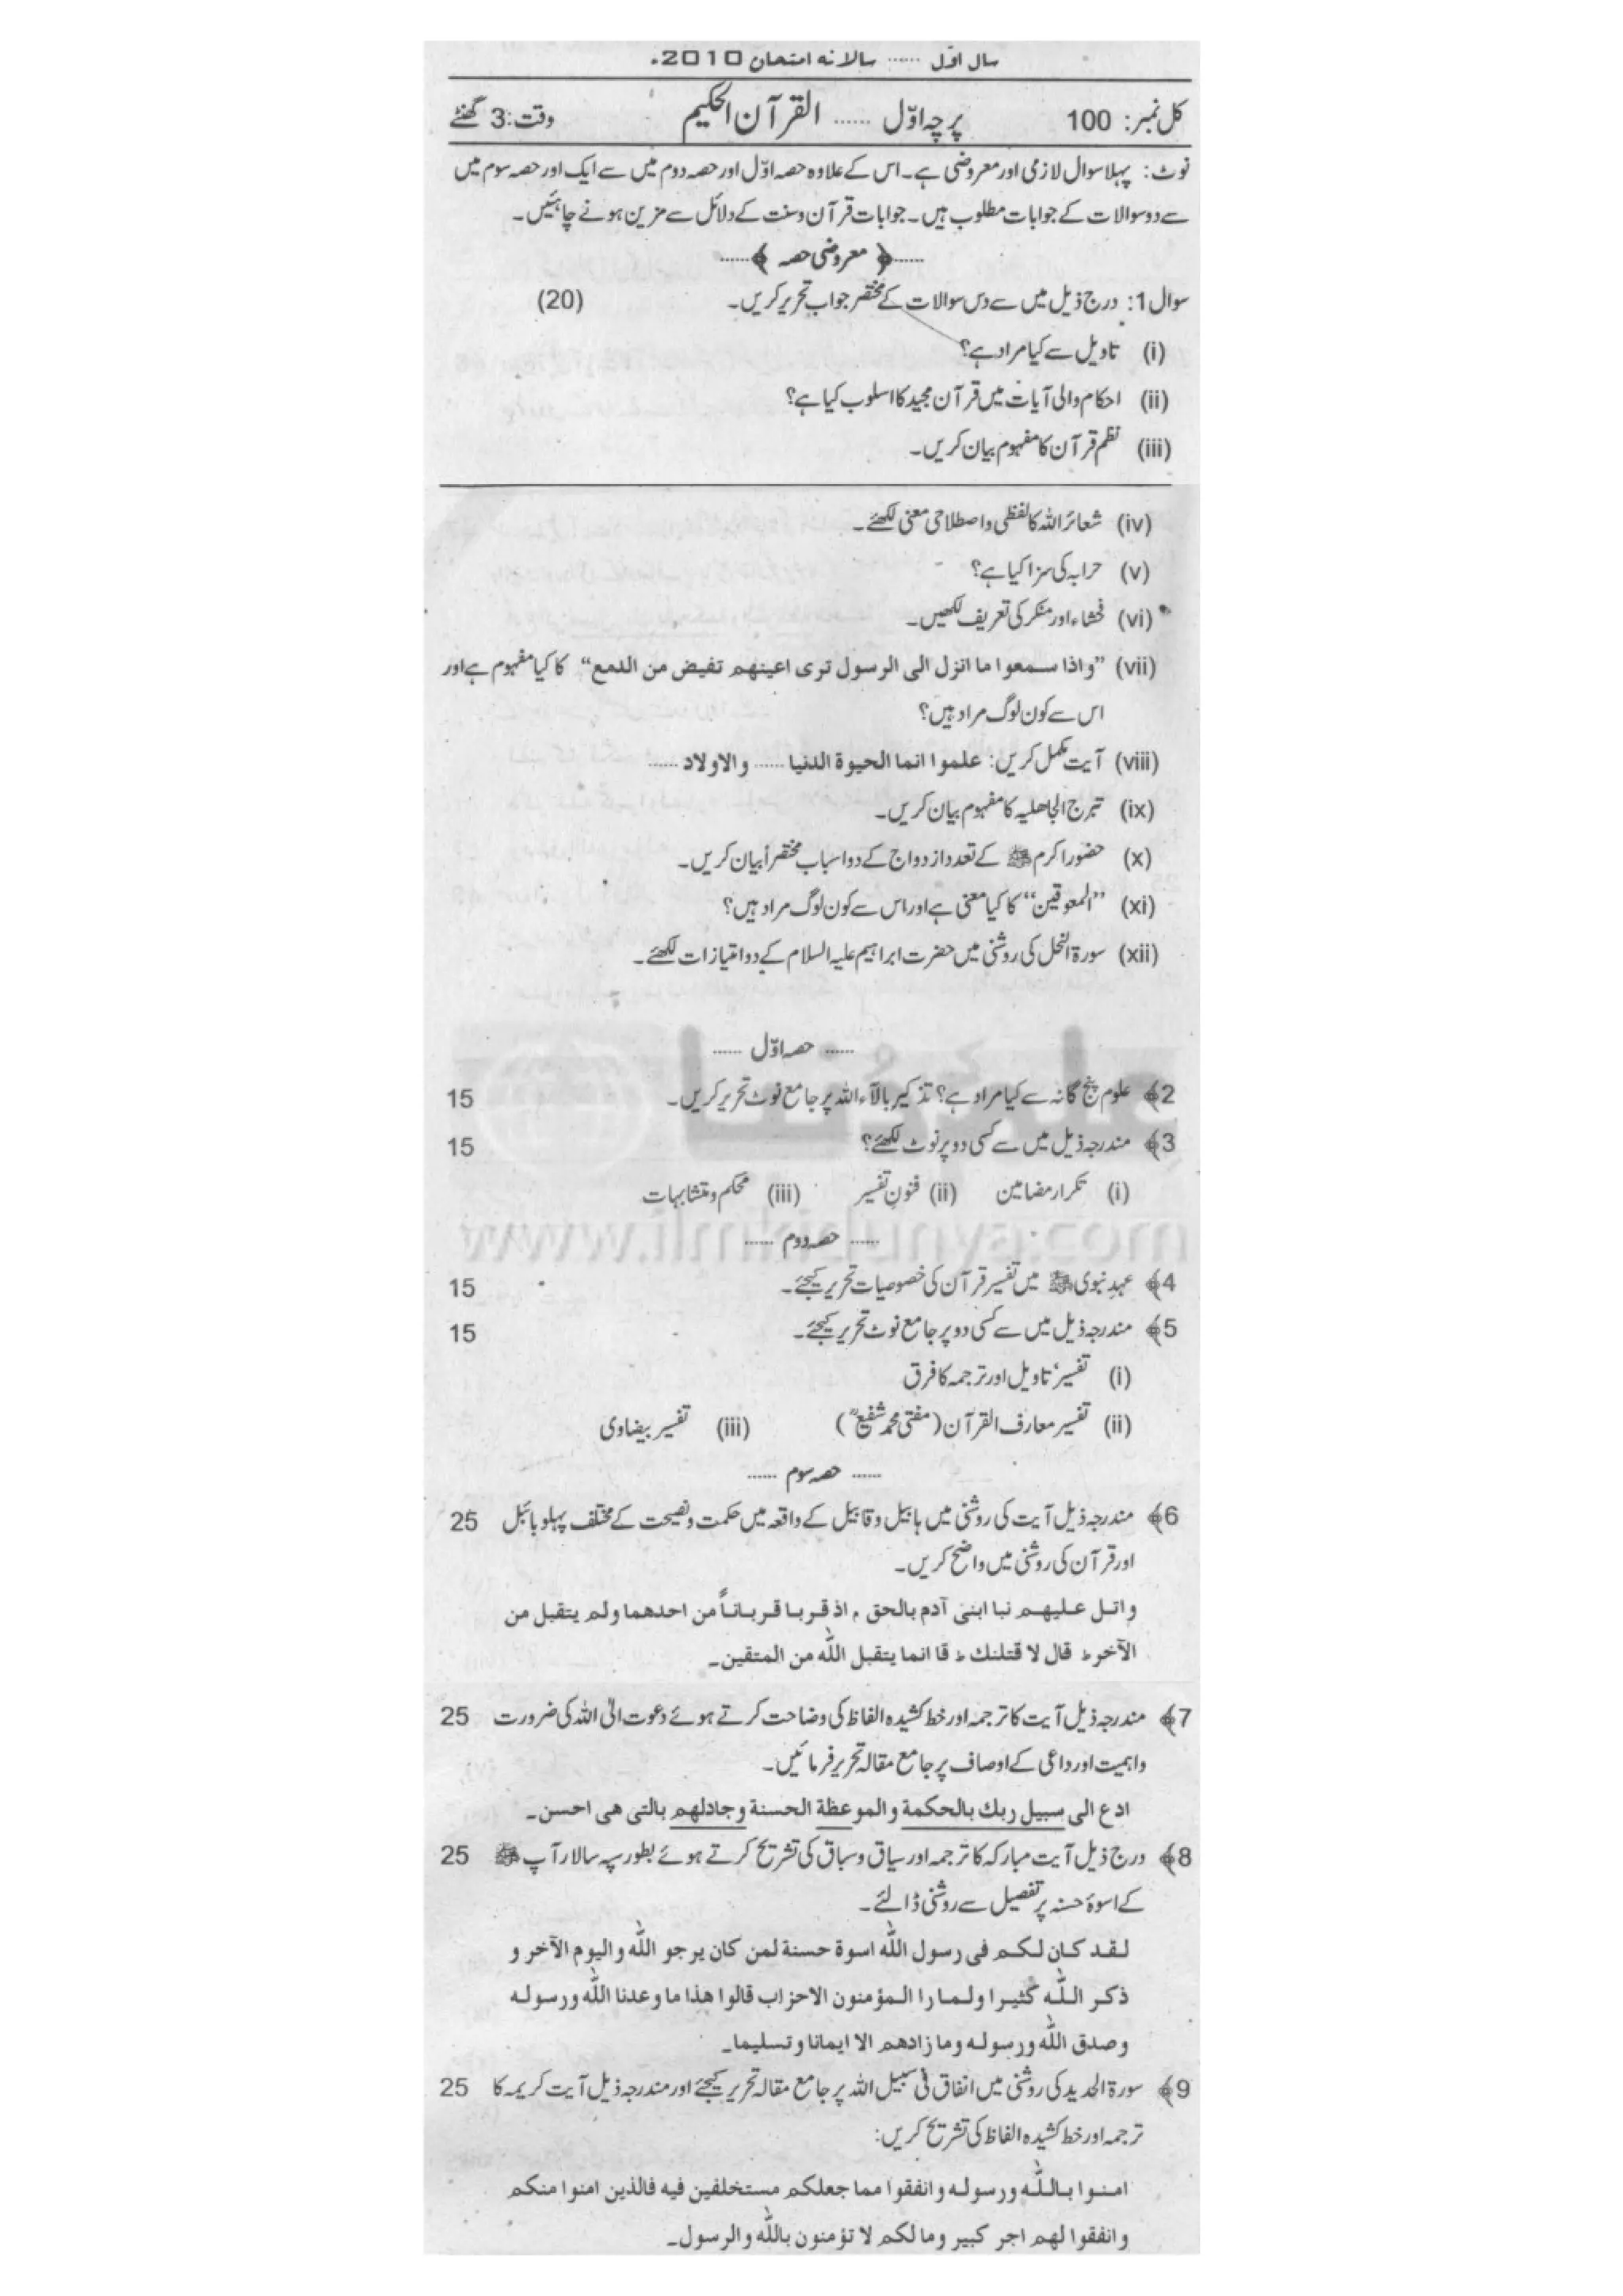 سال اوّل ...... سالانہ امتحان 2010ء
کل نمبر: 100 پرچہ اوّل ...... القرآن الحکیم وقت: 3 گھنٹے
نوٹ: پہلا سوال لازمی اور معروضی ہے۔ اس کے علاوہ حصہ اوّل اور حصہ دوم میں سے ایک اور حصہ سوم میں
سے دو سوالات کے جوابات مطلوب ہیں۔ جوابات قرآن و سنت کے دلائل سے مزین ہونے چاہئیں۔
......﴿ معروضی حصہ ﴾......
سوال 1: درج ذیل میں سے دس سوالات کے مختصر جواب تحریر کریں۔ (20)
(i) تاویل سے کیا مراد ہے؟
(ii) احکام والی آیات میں قرآن مجید کا اسلوب کیا ہے؟
(iii) نظم قرآن کا مفہوم بیان کریں۔
(iv) شعائر اللہ کا لفظی و اصطلاحی معنی لکھئے۔
(v) حرابہ کی سزا کیا ہے؟
(vi) فحشاء اور منکر کی تعریف لکھیں۔
(vii) ”واذا سمعوا ما انزل الی الرسول تری اعینهم تفیض من الدمع“ کا کیا مفہوم ہے اور
اس سے کون لوگ مراد ہیں؟
(viii) آیت مکمل کریں: علموا انما الحیوة الدنیا ...... والاولاد ......
(ix) تبرج الجاھلیہ کا مفہوم بیان کریں۔
(x) حضور اکرم ﷺ کے تعدد ازدواج کے دو اسباب مختصراً بیان کریں۔
(xi) ”المعوقین“ کا کیا معنی ہے اور اس سے کون لوگ مراد ہیں؟
(xii) سورۃ النحل کی روشنی میں حضرت ابراہیم علیہ السلام کے دو امتیازات لکھئے۔
...... حصہ اوّل ......
2﴾ علوم پنج گانہ سے کیا مراد ہے؟ تذکیر بالآء اللہ پر جامع نوٹ تحریر کریں۔ 15
3﴾ مندرجہ ذیل میں سے کسی دو پر نوٹ لکھئے؟ 15
(i) تکرار مضامین (ii) فنونِ تفسیر (iii) محکم و متشابہات
...... حصہ دوم ......
4﴾ عہدِ نبوی ﷺ میں تفسیر قرآن کی خصوصیات تحریر کیجئے۔ 15
5﴾ مندرجہ ذیل میں سے کسی دو پر جامع نوٹ تحریر کیجئے۔ 15
(i) تفسیر، تاویل اور ترجمہ کا فرق
(ii) تفسیر معارف القرآن (مفتی محمد شفیعؒ) (iii) تفسیر بیضاوی
...... حصہ سوم ......
6﴾ مندرجہ ذیل آیت کی روشنی میں ہابیل و قابیل کے واقعہ میں حکمت و نصیحت کے مختلف پہلو بائبل 25
اور قرآن کی روشنی میں واضح کریں۔
واتل علیهم نبا ابنی آدم بالحق ۘ اذ قربا قرباناً من احدهما ولم یتقبل من
الآخر ط قال لا قتلنك ط قا انما یتقبل اللّٰه من المتقین۔
7﴾ مندرجہ ذیل آیت کا ترجمہ اور خط کشیدہ الفاظ کی وضاحت کرتے ہوئے دعوت الی اللہ کی ضرورت 25
و اہمیت اور داعی کے اوصاف پر جامع مقالہ تحریر فرمائیں۔
ادع الی سبیل ربك بالحکمة والموعظة الحسنة وجادلهم بالتی هی احسن۔
8﴾ درج ذیل آیت مبارکہ کا ترجمہ اور سیاق و سباق کی تشریح کرتے ہوئے بطور سپہ سالار آپ ﷺ 25
کے اسوۂ حسنہ پر تفصیل سے روشنی ڈالئے۔
لقد کان لکم فی رسول اللّٰه اسوة حسنة لمن کان یرجو اللّٰه والیوم الآخر و
ذکر اللّٰه کثیرا ولما را المؤمنون الاحزاب قالوا هذا ما وعدنا اللّٰه ورسوله
وصدق اللّٰه ورسوله وما زادهم الا ایمانا وتسلیما۔
9﴾ سورۃ الحدید کی روشنی میں انفاق فی سبیل اللہ پر جامع مقالہ تحریر کیجئے اور مندرجہ ذیل آیت کریمہ کا 25
ترجمہ اور خط کشیدہ الفاظ کی تشریح کریں:
امنوا باللّٰه ورسوله وانفقوا مما جعلکم مستخلفین فیه فالذین امنوا منکم
وانفقوا لهم اجر کبیر وما لکم لا تؤمنون باللّٰه والرسول۔